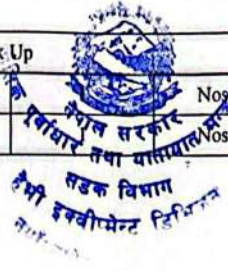 Up
Nos
Nos
नेपाल सरकार
पूर्वाधार तथा यातायात
सडक विभाग
हेभी इक्वीपमेन्ट डिभिजन